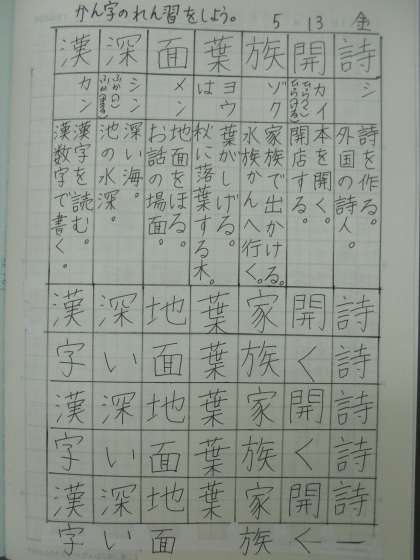 かん字のれん習をしよう。 5 13 金
詩
シ
詩を作る。
外国の詩人。
詩
詩
詩
詩
詩
一
開
カイ
ひら(く)
ひら(ける)
本を開く。
開店する。
開
く
開
く
開
く
族
ゾク
家族で出かける。
水族かんへ行く。
家
族
家
族
家
族
葉
ヨウ
は
葉がしげる。
秋に落葉する木。
葉
葉
葉
葉
葉
面
メン
地面をほる。
お話の場面。
地
面
地
面
地
面
深
シン
ふか(い)
深い海。
池の水深。
深
い
深
い
深
い
漢
カン
漢字を読む。
漢数字で書く。
漢
字
漢
字
漢
字